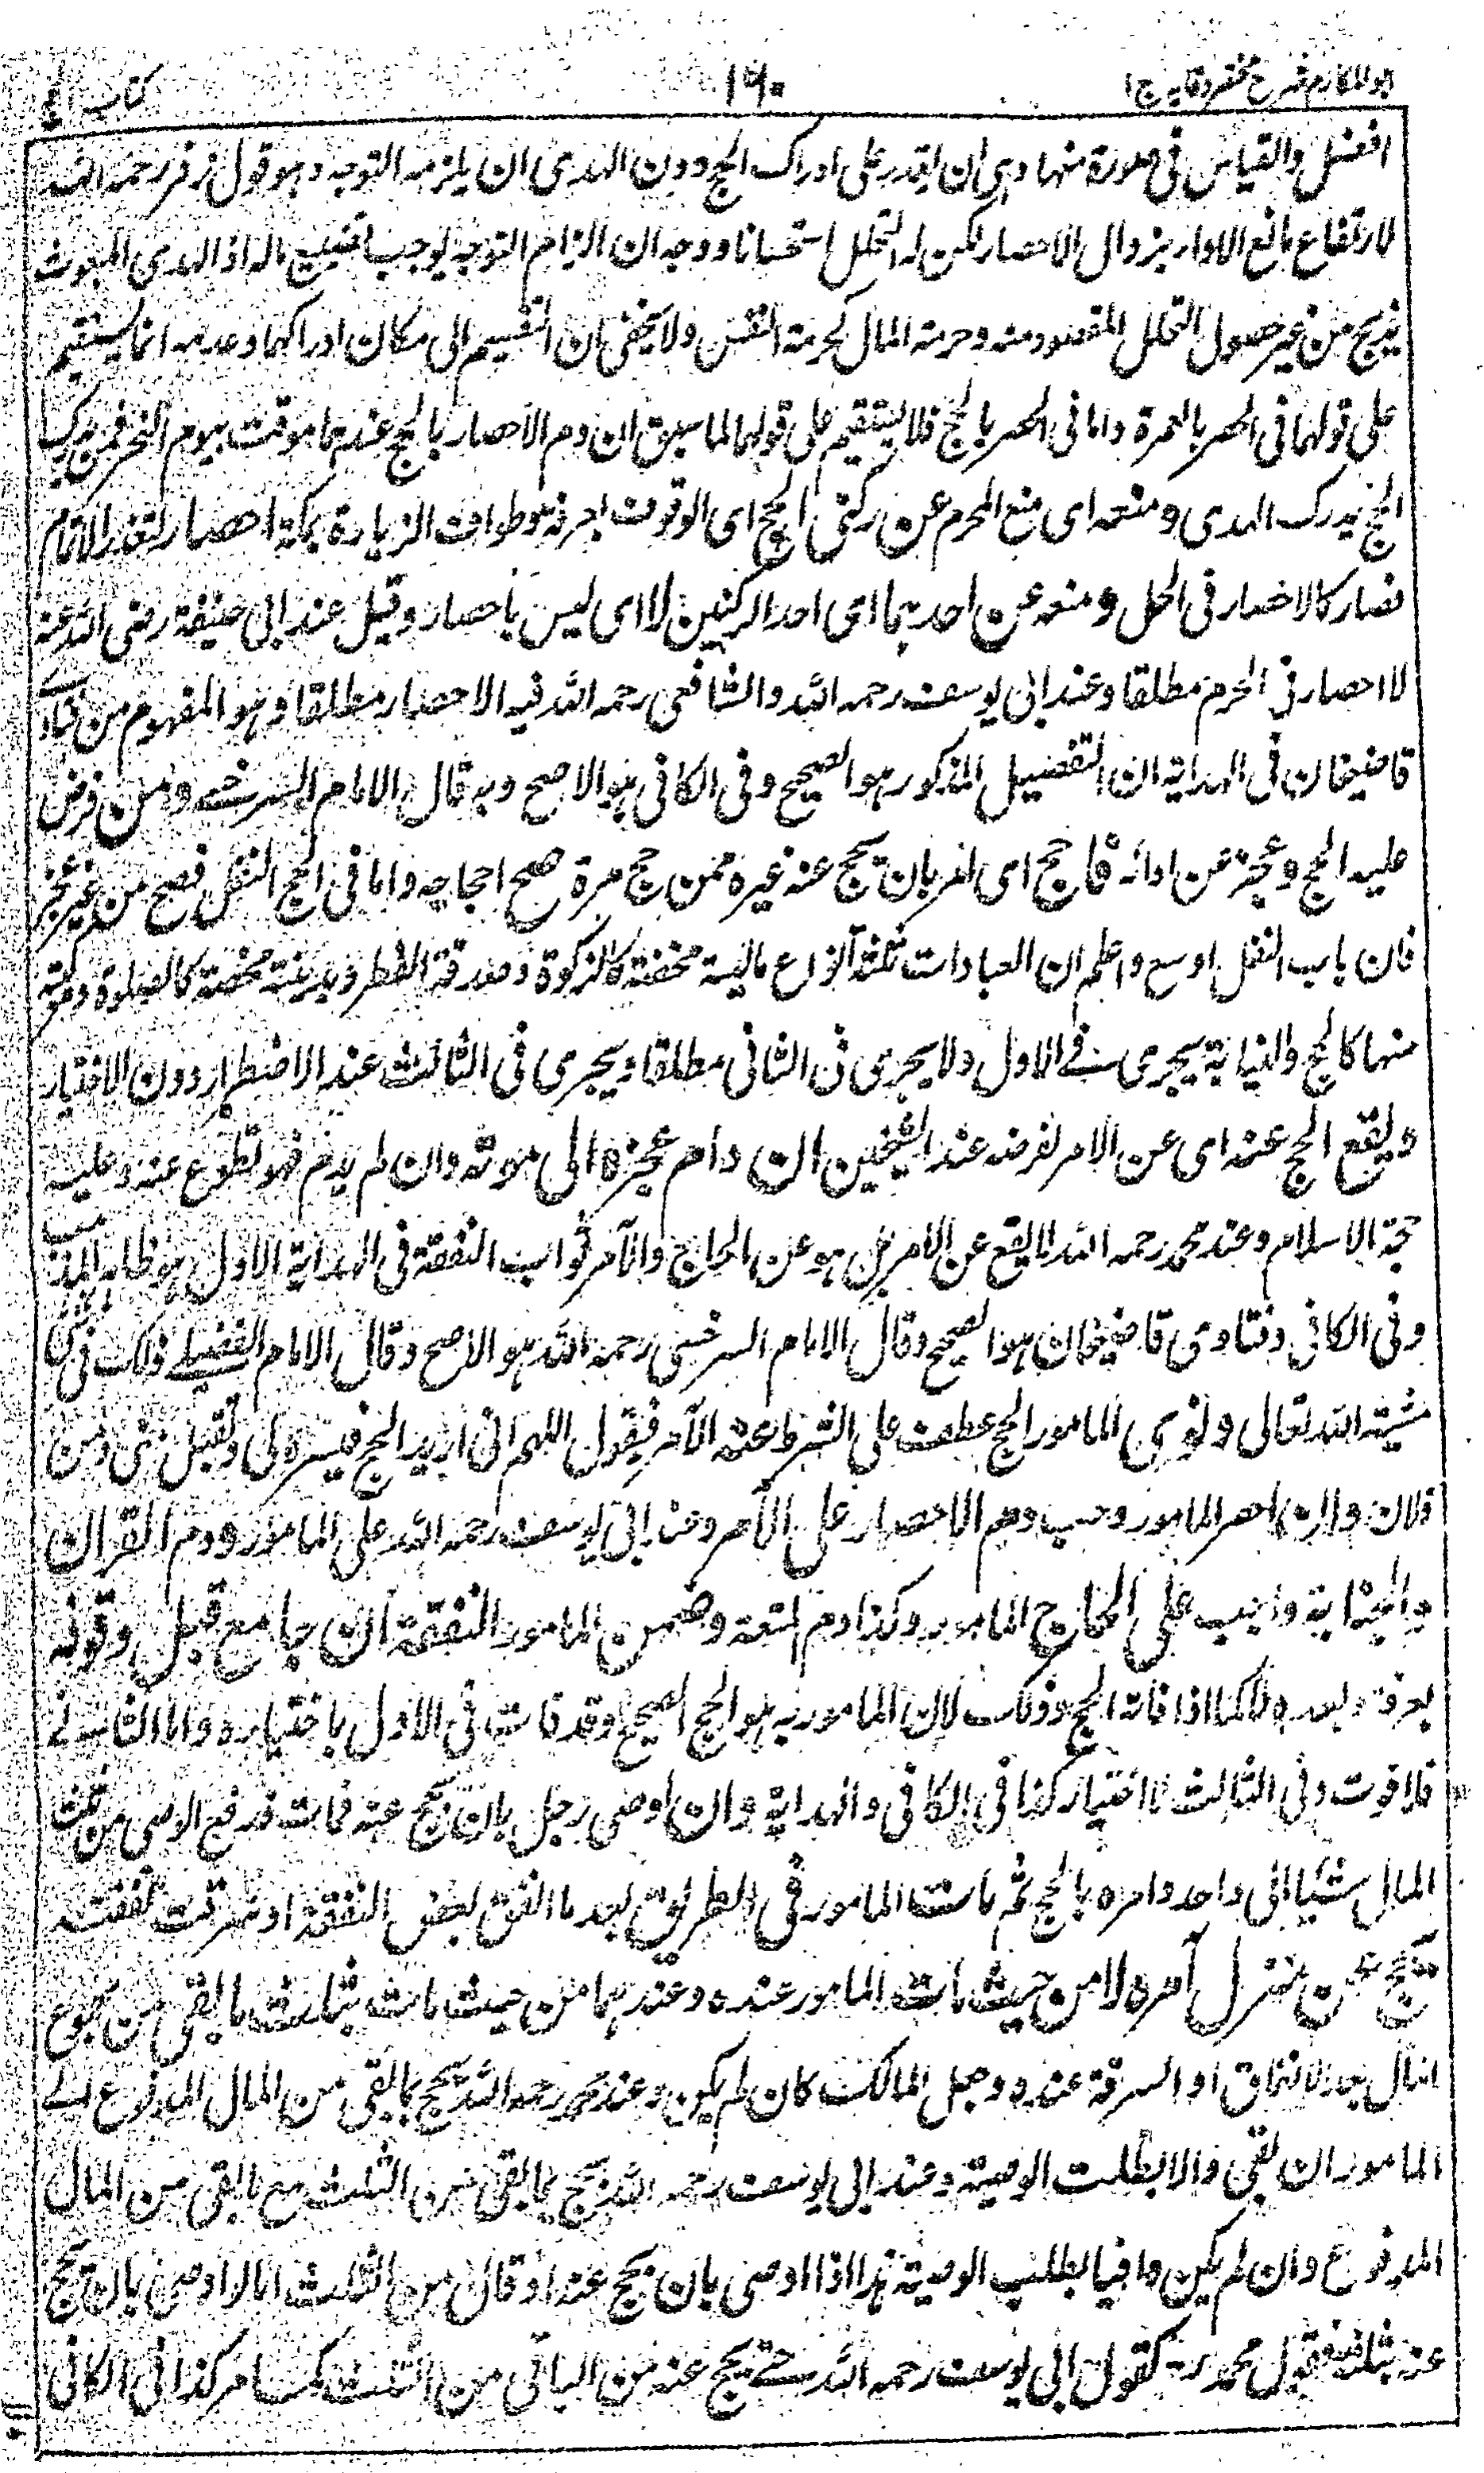 ابو المکارم شرح مختصر وقایہ ج ۱
۱۹۰
کتاب الحج
افضل والقیاس فی صورة منها وہی ان یقدر علی ادراک الحج دون الہدی ان یلزمہ التوجہ وہو قول زفر رحمہ اللہ
لارتفاع مانع الاداء بزوال الاحصار لکن لہ التحلل استحسانا ووجہہ ان الزام التوجہ یوجب تضییع مالہ اذ الہدی المبعوث
یذبح من غیر حصول التحلل المقصود منہ وحرمة المال کحرمة النفس ولا یخفی ان التقسیم الی مکان ادراکہما وعدمہ انما یستقیم
علی قولہما فی الحصر بالعمرة واما فی الحصر بالحج فلا یستقیم علی قولہما لما سبق ان دم الاحصار بالحج عندہما موقت بیوم النحر فمن یدرک
الحج یدرک الہدی ومنعہ ای منع المحرم عن رکنی الحج ای الوقوف بعرفة وطواف الزیارة بمکة احصار لتعذر الاتمام
فصار کالاحصار فی الحل ومنعہ عن احدہما ای احد الرکنین لا ای لیس باحصار وقیل عند ابی حنیفة رضی اللہ عنہ
لا احصار فی الحرم مطلقا وعند ابی یوسف رحمہ اللہ والشافعی رحمہ اللہ فیہ الاحصار مطلقا وہو المفہوم من
قاضیخان فی الہدایة ان التفصیل المذکور ہو الصحیح وفی الکافی ہو الاصح وبہ قال الامام السرخسے ومن فرض
علیہ الحج وعجز عن ادائہ فاحج ای امر بان یحج عنہ غیرہ ممن حج مرة صح احجاجہ واما فی الحج النفل فصح من غیر عجز
فان باب النفل اوسع واعلم ان العبادات ثلثة انواع مالیة محضة کالزکوة وصدقة الفطر وبدنیة محضة کالصلوة ومرکبة
منہا کالحج والنیابة یجری فے الاول ولا یجری فی الثانی مطلقا ویجری فی الثالث عند الاضطرار دون الاختیار
ویقع الحج عنہ ای عن الآمر لفرضہ عند الشیخین ان دام عجزہ الی موتہ وان لم یدم فہو تطوع عنہ وعلیہ
حجة الاسلام وعند محمد رحمہ اللہ لا یقع عن الآمر بل ہو عن الحاج وللآمر ثواب النفقة فی الہدایة الاول ہو ظاہر المذہب
وفی الکافی وفتاوی قاضیخان ہو الصحیح وقال الامام السرخسی رحمہ اللہ ہو الاصح وقال الامام الفضیلے ذلک فی
مشیة اللہ تعالی ونوی المامور الحج عطف علی الشرط عنہ الآمر فیقول اللہم انی ارید الحج فیسرہ لی وتقبل منی ومن
فلان وان احصر المامور وجب دم الاحصار علی الآمر وعند ابی یوسف رحمہ اللہ علی المامور ودم القران
والجنایة واجب علی الحاج المامور وکذا دم المتعة وضمن المامور النفقة ان جامع قبل وقوفہ
بعرفة لا بعدہ ولا کما اذا فاتہ الحج وذلک لان المامور بہ ہو الحج الصحیح وقد فات فی الاول باختیارہ واما الثانے
فلا فوت وفی الثالث لا اختیار کذا فی الکافی والہدایة وان اوصی رجل بان یحج عنہ فمات فدفع الوصی من ثلث
المال شیئا الی واحد وامرہ بالحج ثم مات المامور فی الطریق بعد ما انفق بعض النفقة او سرقت نفقتہ
یحج عن منزل آمرہ لا من حیث مات المامور عندہ وعندہما من حیث مات بثلث ما بقی من مجموع
المال بعد الانفاق او السرقة عندہ وجعل الہالک کان لم یکن وعند محمد رحمہ اللہ یحج بما بقی من المال المدفوع الے
المامور ان بقی والا بطلت الوصیة وعند ابی یوسف رحمہ اللہ یحج بما بقی من الثلث مع ما بقی من المال
المدفوع وان لم یکن وافیا بطلت الوصیة ہذا اذا اوصی بان یحج عنہ او قال من الثلث اما لو اوصی بان یحج
عنہ بثلثہ فقول محمد رح کقول ابی یوسف رحمہ اللہ حتے یحج عنہ من الباقی من الثلث کما مر کذا فی الکافی